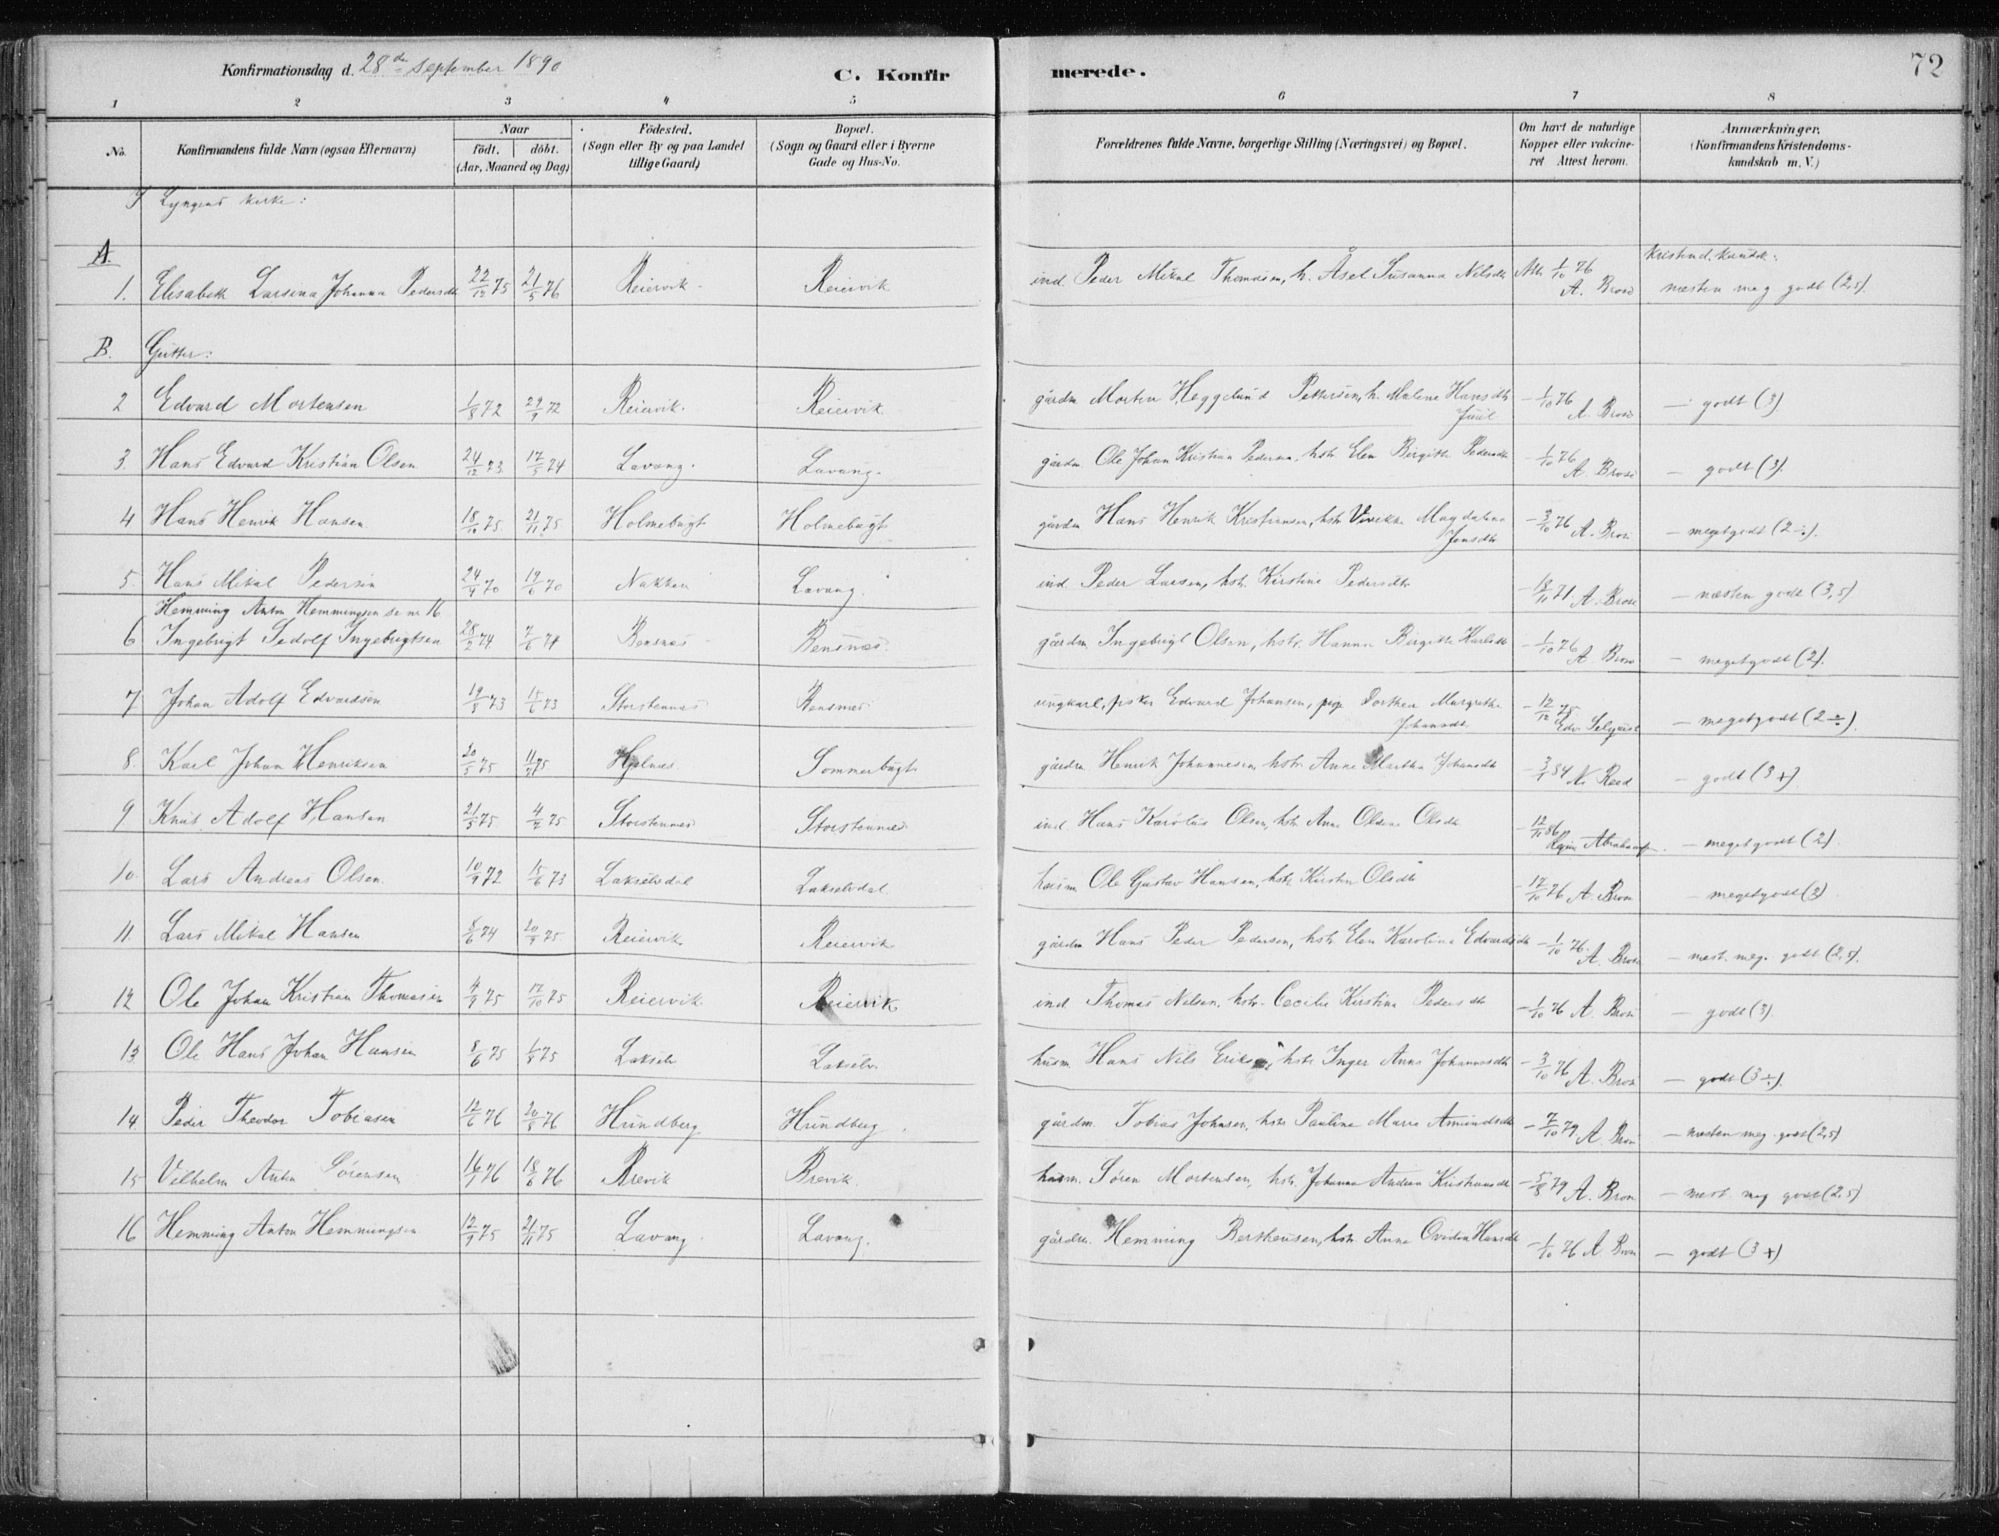 Konfirmationsdag d. 28de september 1890
C. Konfirmerede.
72
1 2 3 4 5 6 7 8
No. Konfirmandens fulde Navn (ogsaa Efternavn) Naar født. døbt. (Aar, Maaned og Dag) Fødested. (Sogn eller By og paa Landet tillige Gaard) Bopæl. (Sogn og Gaard eller i Byerne Gade og Hus-No. Forældrenes fulde Navne, borgerlige Stilling (Næringsvei) og Bopæl. Om havt de naturlige Kopper eller vakcineret Attest herom. Anmærkninger. (Konfirmandens Kristendomskundskab m. V.)
I Lyngens kirke:
A. kristend. kundsk:
1. Elisabeth Larsina Johanna Pedersdt 22/12 75 21/5 76 Reiervik Reiervik ind. Peder Mikal Thomasen, h. Åsel Susanna Nilsdt Att. 1/10 76 A. Brose næsten meg godt (2,5).
B. Gutter:
2 Edvard Mortensen 1/8 72 29/9 72 Reiervik. Reiervik gårdm Morten Heggelund Pettersen, h. Malene Hansdt Juul – 1/10 76 A. Brose – godt (3)
3. Hans Edvard Kristian Olsen 24/12 73 17/5 74 Lavang. Lavang. gårdm. Ole Johan Kristian Pedersen, hstr Elen Birgitte Pedersdt – 1/10 76 A. Brose – godt (3).
4 Hans Henrik Hansen 18/10 75 21/11 75 Holmebugt Holmebugt gårdm Hans Henrik Kristiansen, hstr Vivekke Magdalena Jonsdt – 3/10 76 A. Brose – megetgodt (2÷).
5. Hans Mikal Pedersen 24/4 70 19/6 70 Nakken Lavang. ind. Peder Larsen, hstr. Kirstine Pedersdtr – 18/10 71 A. Brose – næsten godt (3,5)
Hemming Anton Hemmingsen se nr 16
6 Ingebrigt Sedolf Ingebrigtsen 28/2 74 7/6 74 Bensnes Bensnæs. gårdm. Ingebrigt Olsen, hstr. Hanna Birgitte Karlsdt – 1/10 76 A. Brose – megetgodt (2).
7 Johan Adolf Edvardsen 15/6 73 Storstennæs Bensnæs ungkarl, fisker Edvard Johansen, pige Dorthea Margrethe Johansdt. – 12/12 75 – megetgodt (2÷).
8. Karl Johan Henriksen 20/5 75 Sommerbugt gårdm. Henrik Johannesen, hstr Anne Martha Johansdt N. Reed – godt (3+)
9 Knut Adolf Hansen 21/5 75 4/7 75 Storstennæs Storstennæs ind. Hans Karolus Olsen, hstr Anne Oldine Olsdt – 12/11 86 – megetgodt (2).
10. Lars Andreas Olsen. 10/9 72 15/6 73 Lakselvdal Lakselvdal husm Ole Gustav Hansen, hstr. Kirsten Olsdt – 17/10 76 A. Brose – megetgodt (2)
11. Lars Mikal Hansen 20/9 75 Reiervik Reiervik gårdm Hans Peder Pedersen, hstr. Elen Karolina Edvardsdt – 1/10 76. A. Brose – næst. meg. godt (2,5).
12. Ole Johan Kristian Thomasen 4/9 75 17/10 75 Reiervik. Reiervik ind. Thomas Nilsen, hstr. Cecilie Kirstine Pedersdt – 1/10 76 A. Brose – godt (3).
13. Ole Hans Johan Hansen 8/6 75 1/8 75 Lakselv Lakselv. husm. Hans Nils Eriksen, hstr Inger Anna Johannesdt – 3/10 76 A. Brose – godt (3÷).
14 Peder Theodor Tobiasen 12/6 76 20/8 76 Hundberg Hundberg. gårdm. Tobias Johnsen, hstr Pauline Marie Amundsdt – 7/10 79 A. Brose – næsten meg. godt (2,5)
15 Vilhelm Anton Sörensen 16/4 76 18/6 76 Brevik Brevik. husm. Sören Mortensen, hstr. Johanna Andrea Kristiansdt – 5/8 79 A. Brose – næst. meg godt (2,5)
16 Hemming Anton Hemmingsen 12/9 75 21/11 75 Lavang. Lavang. gårdm. Hemming Bertheusen, hstr Anne Ovidia Hansdt – 1/10 76 A Brose – godt (3+)